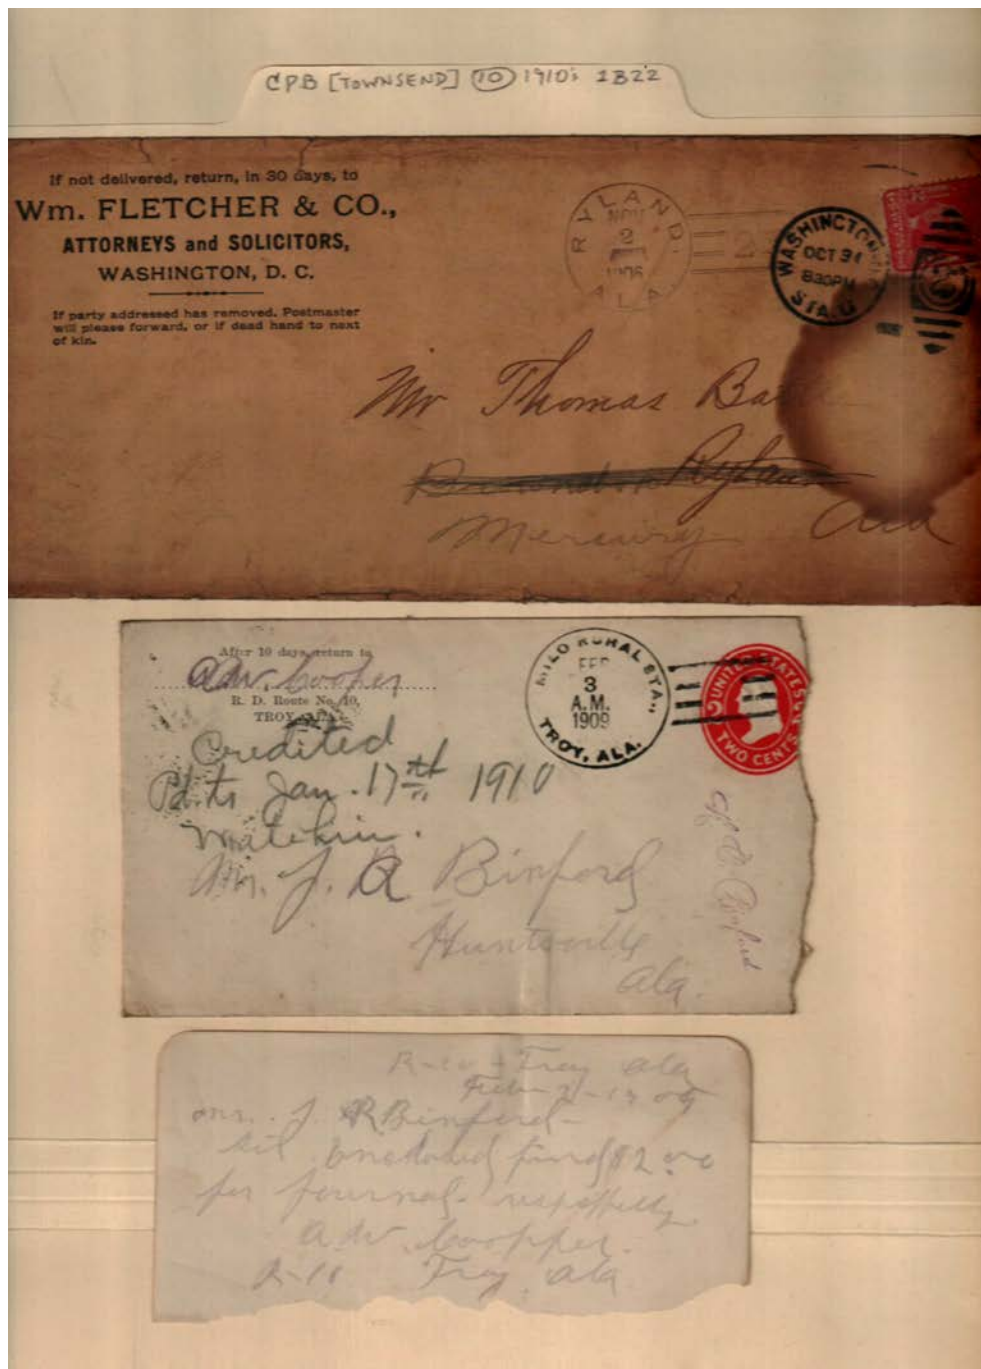 CPB [TOWNSEND] 10 1910s 2B22
If not delivered, return, in 30 days, to
Wm. FLETCHER & CO.,
ATTORNEYS and SOLICITORS,
WASHINGTON, D. C.
If party addressed has removed. Postmaster
will please forward, or if dead hand to next
of kin.
RYLAND
NOV
2
1906
ALA
2
WASHINGTON
OCT 31
830PM
STA.
Mr Thomas
Mercury Ala
After 10 days, return to
A.W. Cooper
R. D. Route No. 10,
TROY, ALA.
MILO RURAL STA.,
FEB
3
A.M.
1909
TROY, ALA.
UNITED STATES
TWO CENTS
Credited
Pd. to Jan. 17th 1910
Mr. J. R Binford
Huntsville
Ala.
Binford
R-10 - Troy Ala
Feb 09
Mr. J. R Binford-
Sir enclosed find $2.00
for journal- respectfully
A W. Cooper.
R-10 Troy Ala